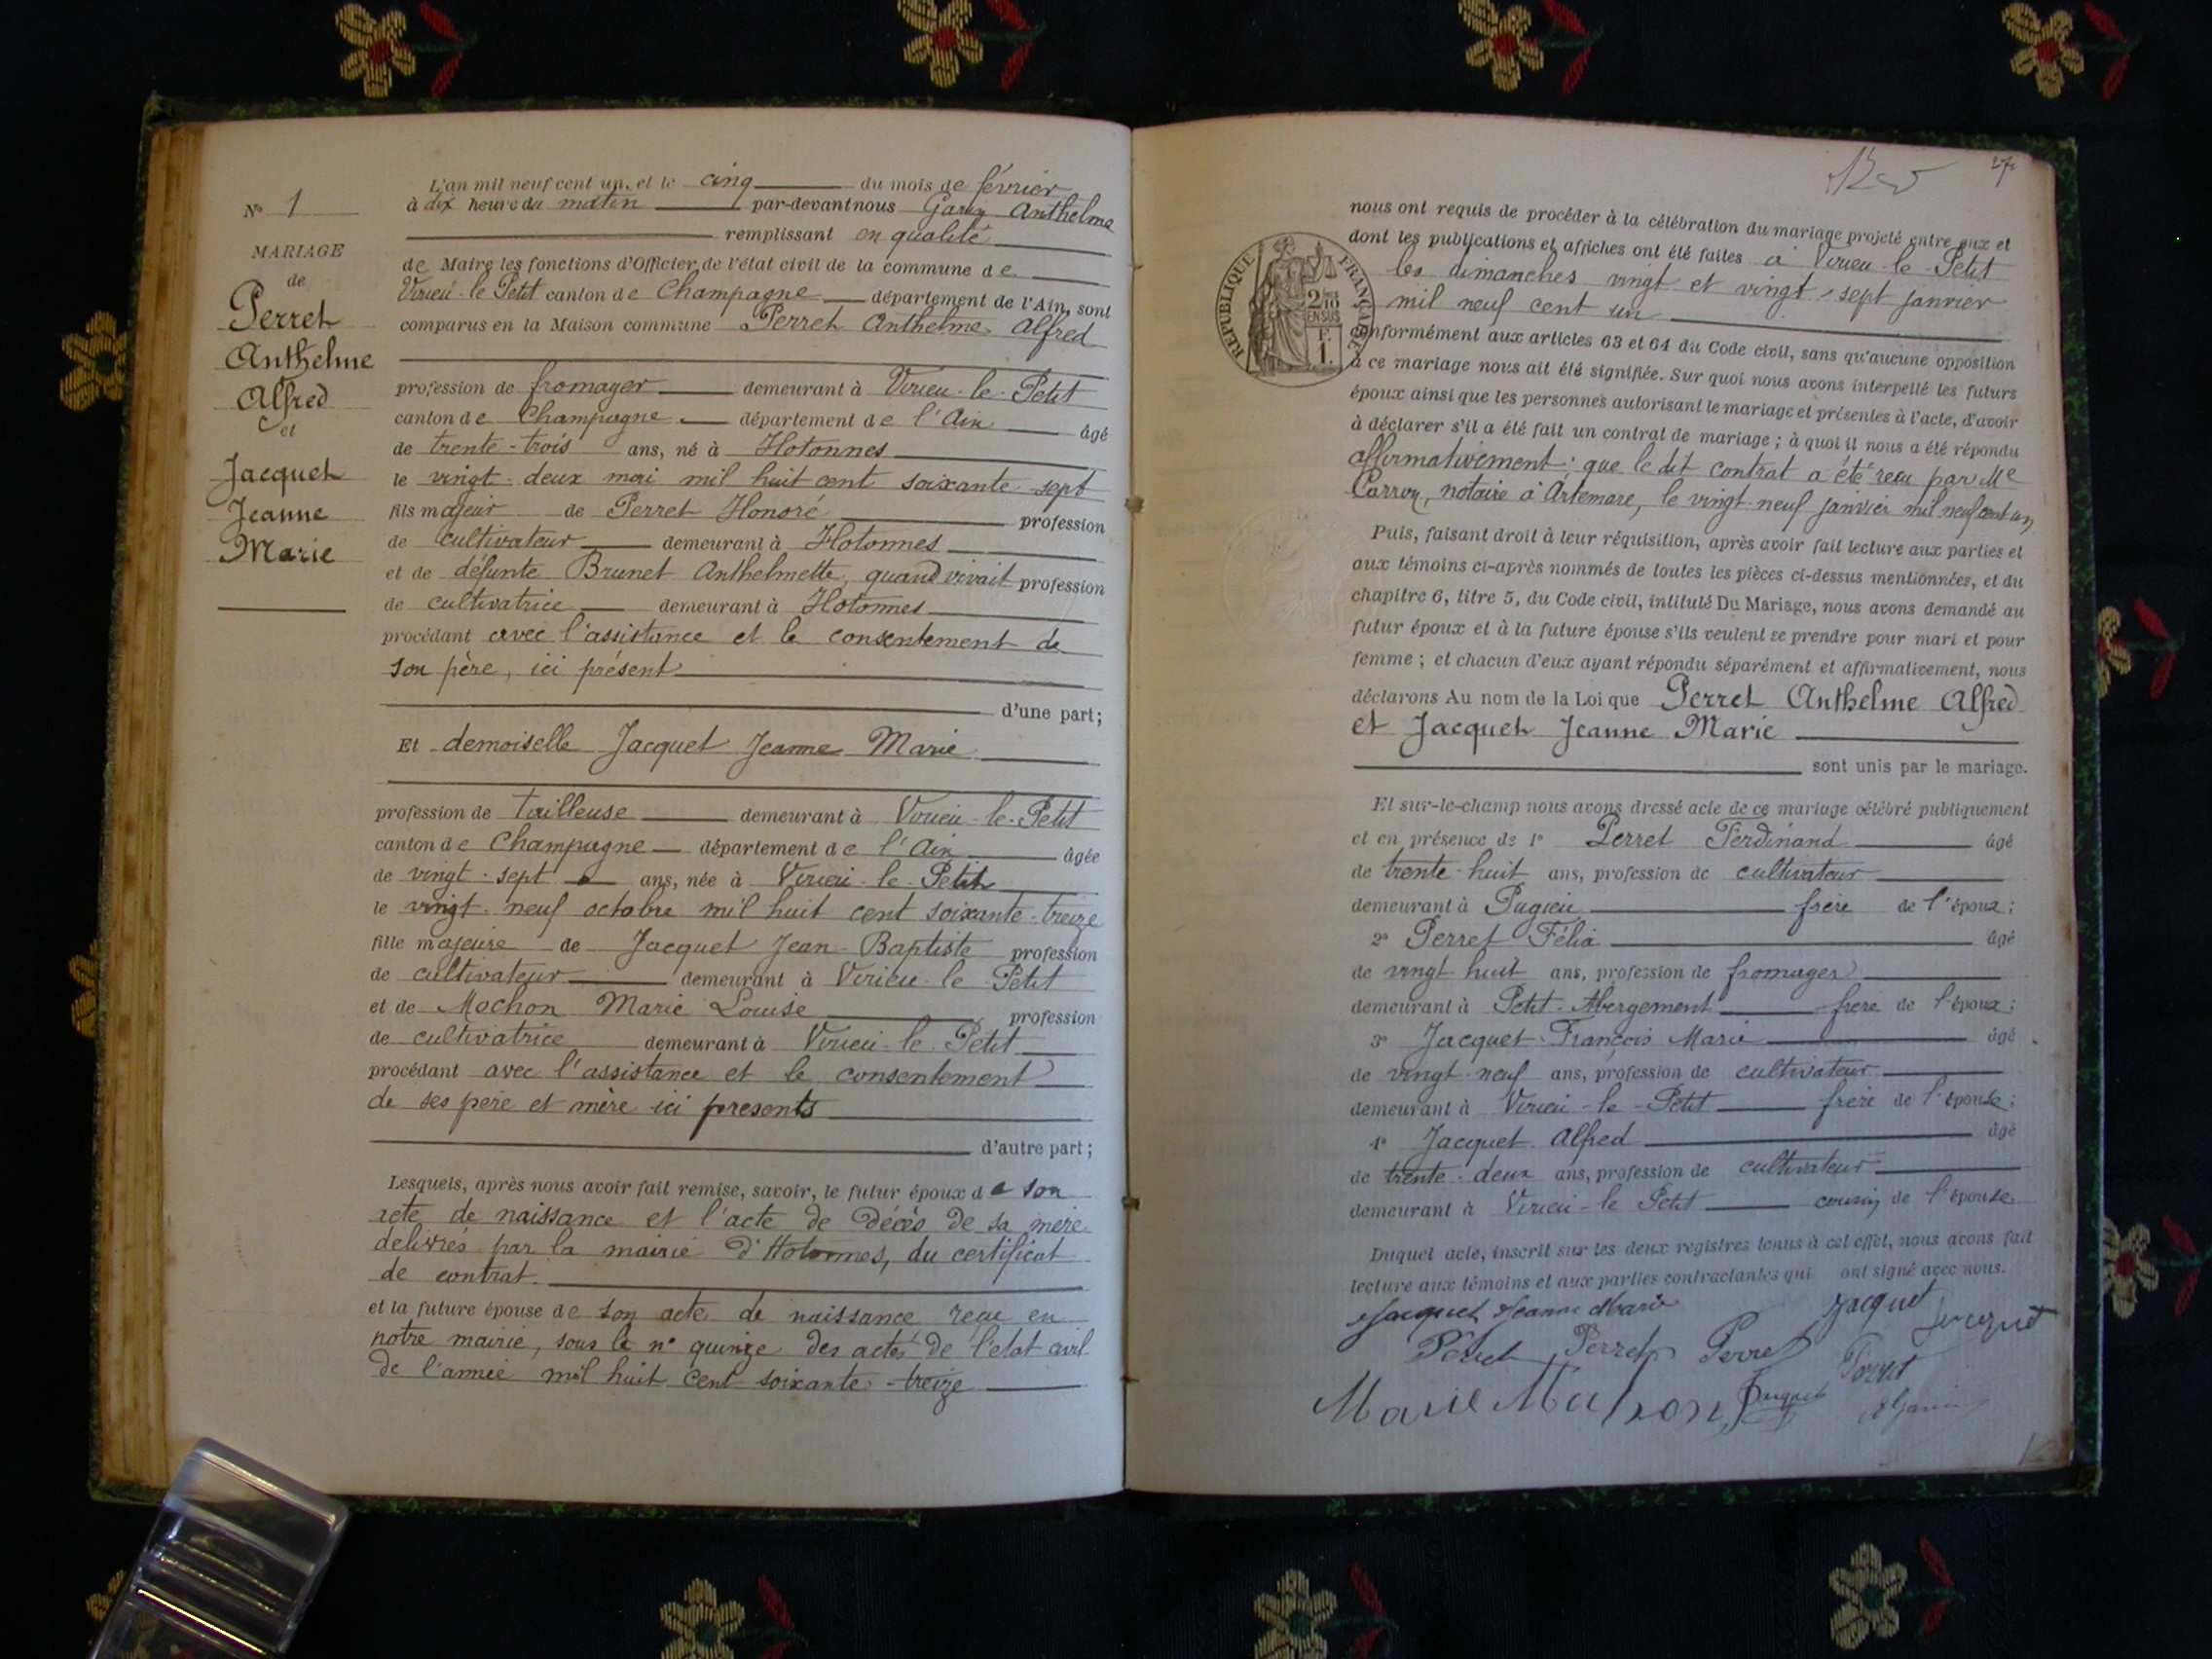 N° 1
MARIAGE
de
Perret
Anthelme
Alfred
et
Jacquet
Jeanne
Marie
L'an mil neuf cent un, et le cinq du mois de février
à dix heure du matin par-devant nous Garin Anthelme
remplissant en qualité
de Maire les fonctions d'Officier de l'état civil de la commune de
Virieu-le-Petit canton de Champagne département de l'Ain, sont
comparus en la Maison commune Perret Anthelme Alfred
profession de fromager demeurant à Virieu-le-Petit
canton de Champagne département de l'Ain âgé
de trente-trois ans, né à Hotonnes
le vingt-deux mai mil huit cent soixante-sept
fils majeur de Perret Honoré profession
de cultivateur demeurant à Hotonnes
et de défunte Brunet Anthelmette, quand vivait profession
de cultivatrice demeurant à Hotonnes
procédant avec l'assistance et le consentement de
son père, ici présent
d'une part;
Et demoiselle Jacquet Jeanne Marie
profession de tailleuse demeurant à Virieu-le-Petit
canton de Champagne département de l'Ain âgée
de vingt-sept ans, née à Virieu-le-Petit
le vingt-neuf octobre mil huit cent soixante-treize
fille majeure de Jacquet Jean-Baptiste profession
de cultivateur demeurant à Virieu-le-Petit
et de Mochon Marie Louise profession
de cultivatrice demeurant à Virieu-le-Petit
procédant avec l'assistance et le consentement
de ses père et mère ici presents
d'autre part;
Lesquels, après nous avoir fait remise, savoir, le futur époux de son
acte de naissance et l'acte de décès de sa mère
delivrés par la mairie d'Hotonnes, du certificat
de contrat.
et la future épouse de son acte de naissance reçu en
notre mairie, sous le n° quinze des actes de l'etat civil
de l'année mil huit cent soixante-treize
27
RÉPUBLIQUE FRANÇAISE
2/10 EN SUS
F. 1.
nous ont requis de procéder à la célébration du mariage projeté entre eux et
dont les publications et affiches ont été faites à Virieu-le-Petit
les dimanches vingt et vingt-sept janvier
mil neuf cent un
conformément aux articles 63 et 64 du Code civil, sans qu'aucune opposition
à ce mariage nous ait été signifiée. Sur quoi nous avons interpellé les futurs
époux ainsi que les personnes autorisant le mariage et présentes à l'acte, d'avoir
à déclarer s'il a été fait un contrat de mariage; à quoi il nous a été répondu
affirmativement: que le dit contrat a été reçu par Me
Carron, notaire à Artemare, le vingt-neuf janvier mil neuf cent un
Puis, faisant droit à leur réquisition, après avoir fait lecture aux parties et
aux témoins ci-après nommés de toutes les pièces ci-dessus mentionnées, et du
chapitre 6, titre 5, du Code civil, intitulé Du Mariage, nous avons demandé au
futur époux et à la future épouse s'ils veulent se prendre pour mari et pour
femme; et chacun d'eux ayant répondu séparément et affirmativement, nous
déclarons Au nom de la Loi que Perret Anthelme Alfred
et Jacquet Jeanne Marie
sont unis par le mariage.
Et sur-le-champ nous avons dressé acte de ce mariage célébré publiquement
et en présence de 1° Perret Ferdinand âgé
de trente-huit ans, profession de cultivateur
demeurant à Pugieu frère de l'époux;
2° Perret Félix âgé
de vingt huit ans, profession de fromager
demeurant à Petit-Abergement frère de l'époux;
3° Jacquet François Marie âgé
de vingt-neuf ans, profession de cultivateur
demeurant à Virieu-le-Petit frère de l'épouse;
4° Jacquet Alfred âgé
de trente-deux ans, profession de cultivateur
demeurant à Virieu-le Petit cousin de l'épouse
Duquel acte, inscrit sur les deux registres tenus à cet effet, nous avons fait
lecture aux témoins et aux parties contractantes qui ont signé avec nous.
Jacquet Jeanne Marie Jacquet Jacquet
Perret Perret Perret
Marie Mochon Jacquet